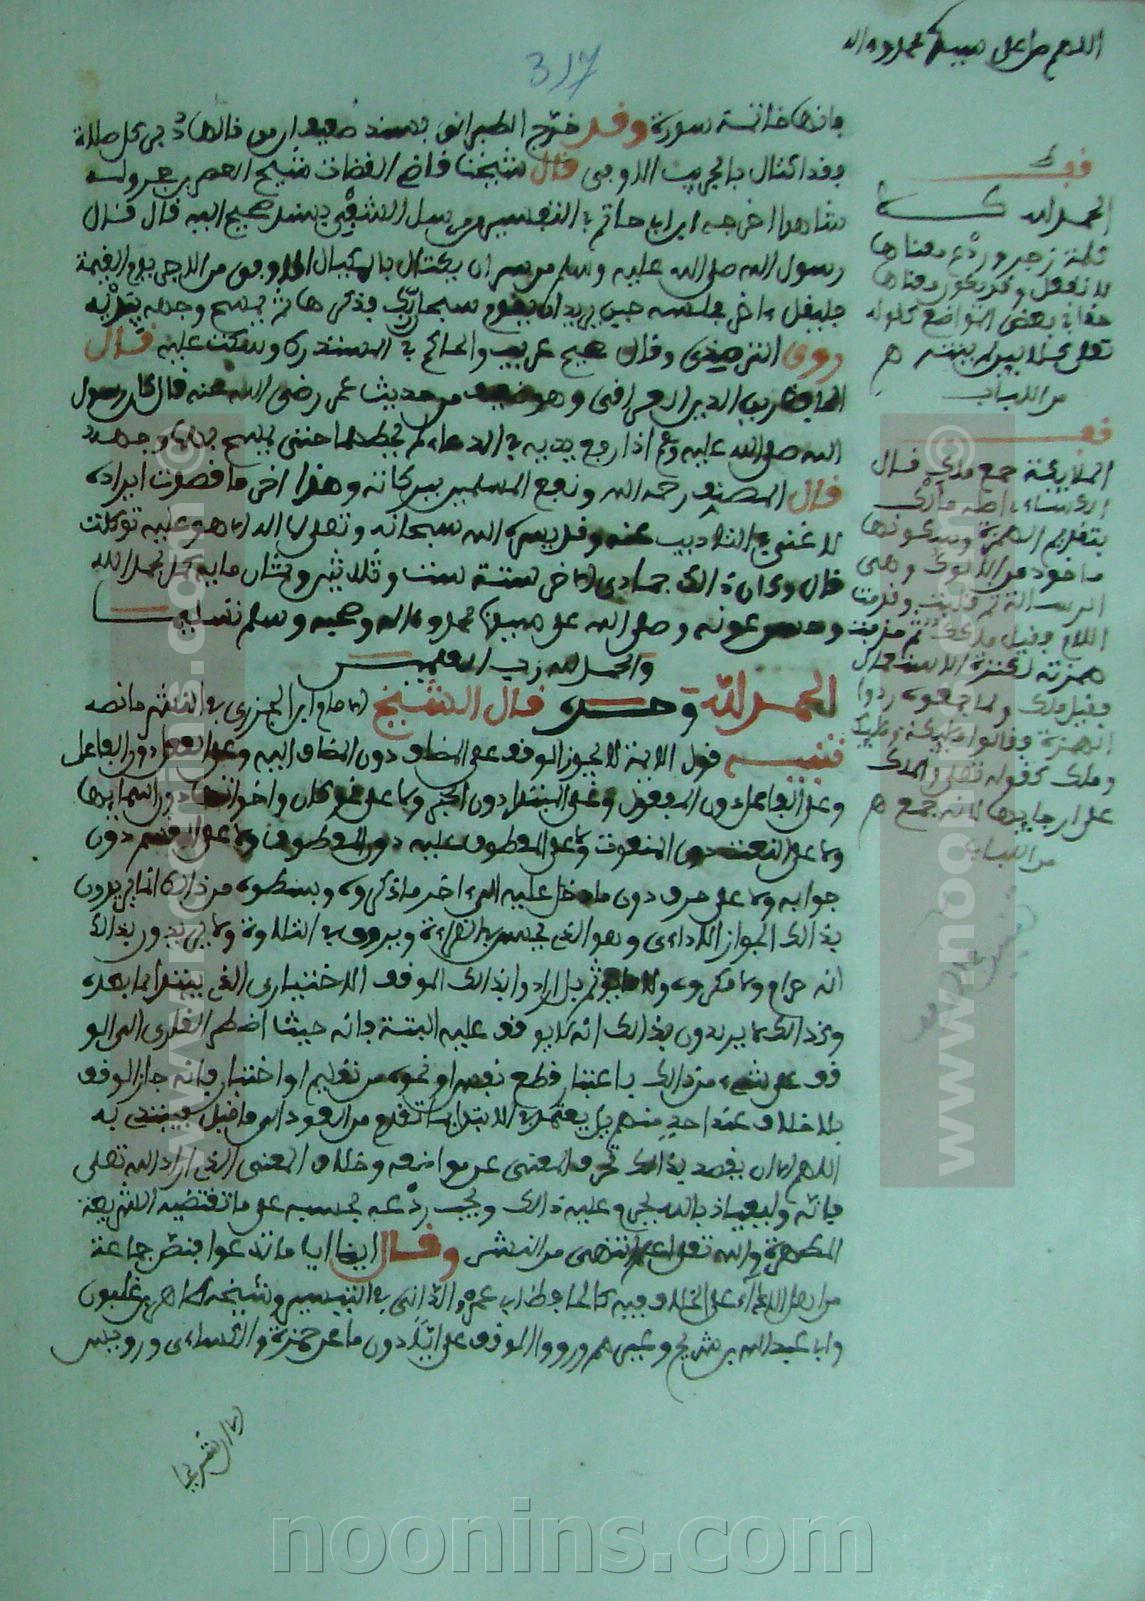 اللهم صل على سيدنا محمد وءاله
317
فإنها خاتمة سورة وقد خرج الطبراني بسند ضعيف أن من قالها دبر كل صلاة
فقد اكتال بالجريب الاوفى قال شيخنا قاضي القضاة شيخ العصر بن حجر وله
شاهد اخرجه ابن ابي حاتم في التفسير من مرسل الشعبي بسند صحيح اليه قال قال
رسول الله صلى الله عليه وسلم من سره ان يكتال بالمكيال الاوفى من الاجر يوم القيمة
فليقل ءاخر مجلسه حين يريد ان يقوم سبحان ربك فذكرها ثم يمسح وجهه بيديه
روى الترمذي وقال صحيح غريب والحاكم في المستدرك وسكت عليه قال
الحافظ زين الدين العراقي وهو ضعيف من حديث عمر رضي الله عنه قال كان رسول
الله صلى الله عليه وسلم اذا رفع يديه في الدعاء لم يحطهما حتى يمسح بهما وجهه
قال المصنف رحمه الله ونفع المسلمين ببركاته وهذا اخر ما قصدت ايراده
لا غنى في التلاديب عنه وقد يسره الله سبحانه وتعلى لا اله الا هو عليه توكلت
قال وكان ذالك جمادى الاخر ستة ست وثلاثين وثمان ماية كمل بحمد الله
وحسن عونه وصلى الله على سيدنا محمد وءاله وصحبه وسلم تسليما
والحمد لله رب العلمين
الحمد لله وحده قال الشيخ الامام ابن الجزري في النشر ما نصه
تنبيه قول الايمة لا يجوز الوقف على المضاف دون المضاف اليه وعلى الفعل دون الفاعل
وعلى الفاعل دون المفعول وعلى المبتدا دون الخبر ولا على نحو كان واخواتها دون اسمايها
ولا على النعت دون المنعوت ولا على المعطوف عليه دون المعطوف ولا على القسم دون
جوابه ولا على حرف دون ما دخل عليه الى ءاخر ما ذكروه وبسطوه من ذالك انما يريدون
بذالك الجواز الاداءي وهو الذي يحسن في القراءة ويروق في التلاوة ولا يريدون بذالك
انه حرام ولا مكروه ولا ما يوثم بل ارادوا بذالك الوقف الاختياري الذي يبتدا بما بعده
وكذالك لا يريدون بذالك انه لا يوقف عليه البتة فانه حيث اضطر القاري الى الو
قف على شيء من ذالك باعتبار قطع نفس او نحوه من تعليم او اختبار فانه جاز الوقف
بلا خلاف عند احد منهم ثم يعتمد في الابتداء ما تقدم من العود الى ما قبل فيبتدئ به
اللهم الا ان يقصد بذالك تحريف المعنى عن مواضعه وخلاف المعنى الذي اراد الله تعلى
فانه والعياذ بالله يحرم عليه ذالك ويجب ردعه بحسبه على ما تقتضيه الشريعة
المطهرة والله تعلى اعلم انتهى من النشر وقال ايضا ايا ما تدعوا فنص جماعة
من اهل الاداء على الخلاف فيه كالحافظ ابي عمرو الداني في التيسير وشيخه طاهر بن غلبون
وابي عبد الله بن شريح وغيرهم ورووا الوقف على ايا دون ما عن حمزة والكساءي ورويس
الا ان ابن شريح
قف
الحمد لله كلا
كلمة زجر وردع معناها
لا تفعل وقد يكون معناها
حقا في بعض المواضع كقوله
تعلى كلا لين لم ينته هـ
من اللباب
قف
الملايكة جمع ملك قال
الكساءي اصله مألك
بتقديم الهمزة وسكونها
ماخوذ من الالوك وهي
الرسالة ثم قلبت وقدمت
اللام فقيل ملأك ثم حذفت
همزته لكثرة الاستعمال
فقيل ملك ولما جمعوه ردوا
الهمزة وقالوا ملايكة وملايك
وملك كقوله تعلى والملك
على ارجايها لانه جمع هـ
من اللباب